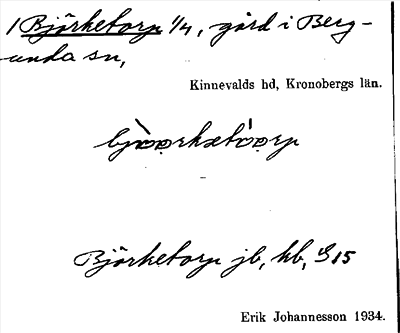 1 Björketorp 1/4, gård i Berg-
unda sn,
Kinnevalds hd, Kronobergs län.
Björketorp jb, kb, GS 15
Erik Johannesson 1934.